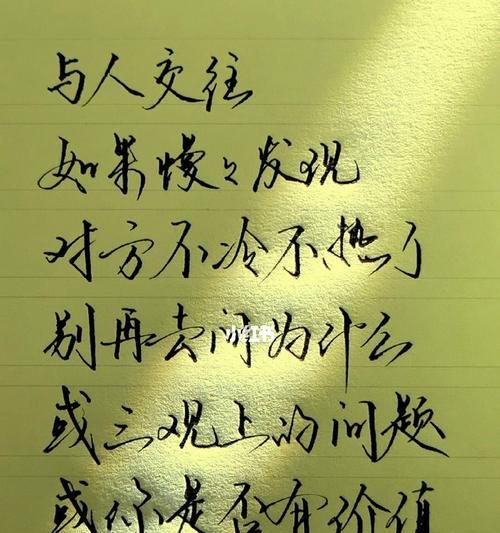 与人交往
如果慢々发现
对方不冷不热了
别再去问为什么
小红书
或三观上的问题
或你是否有价值